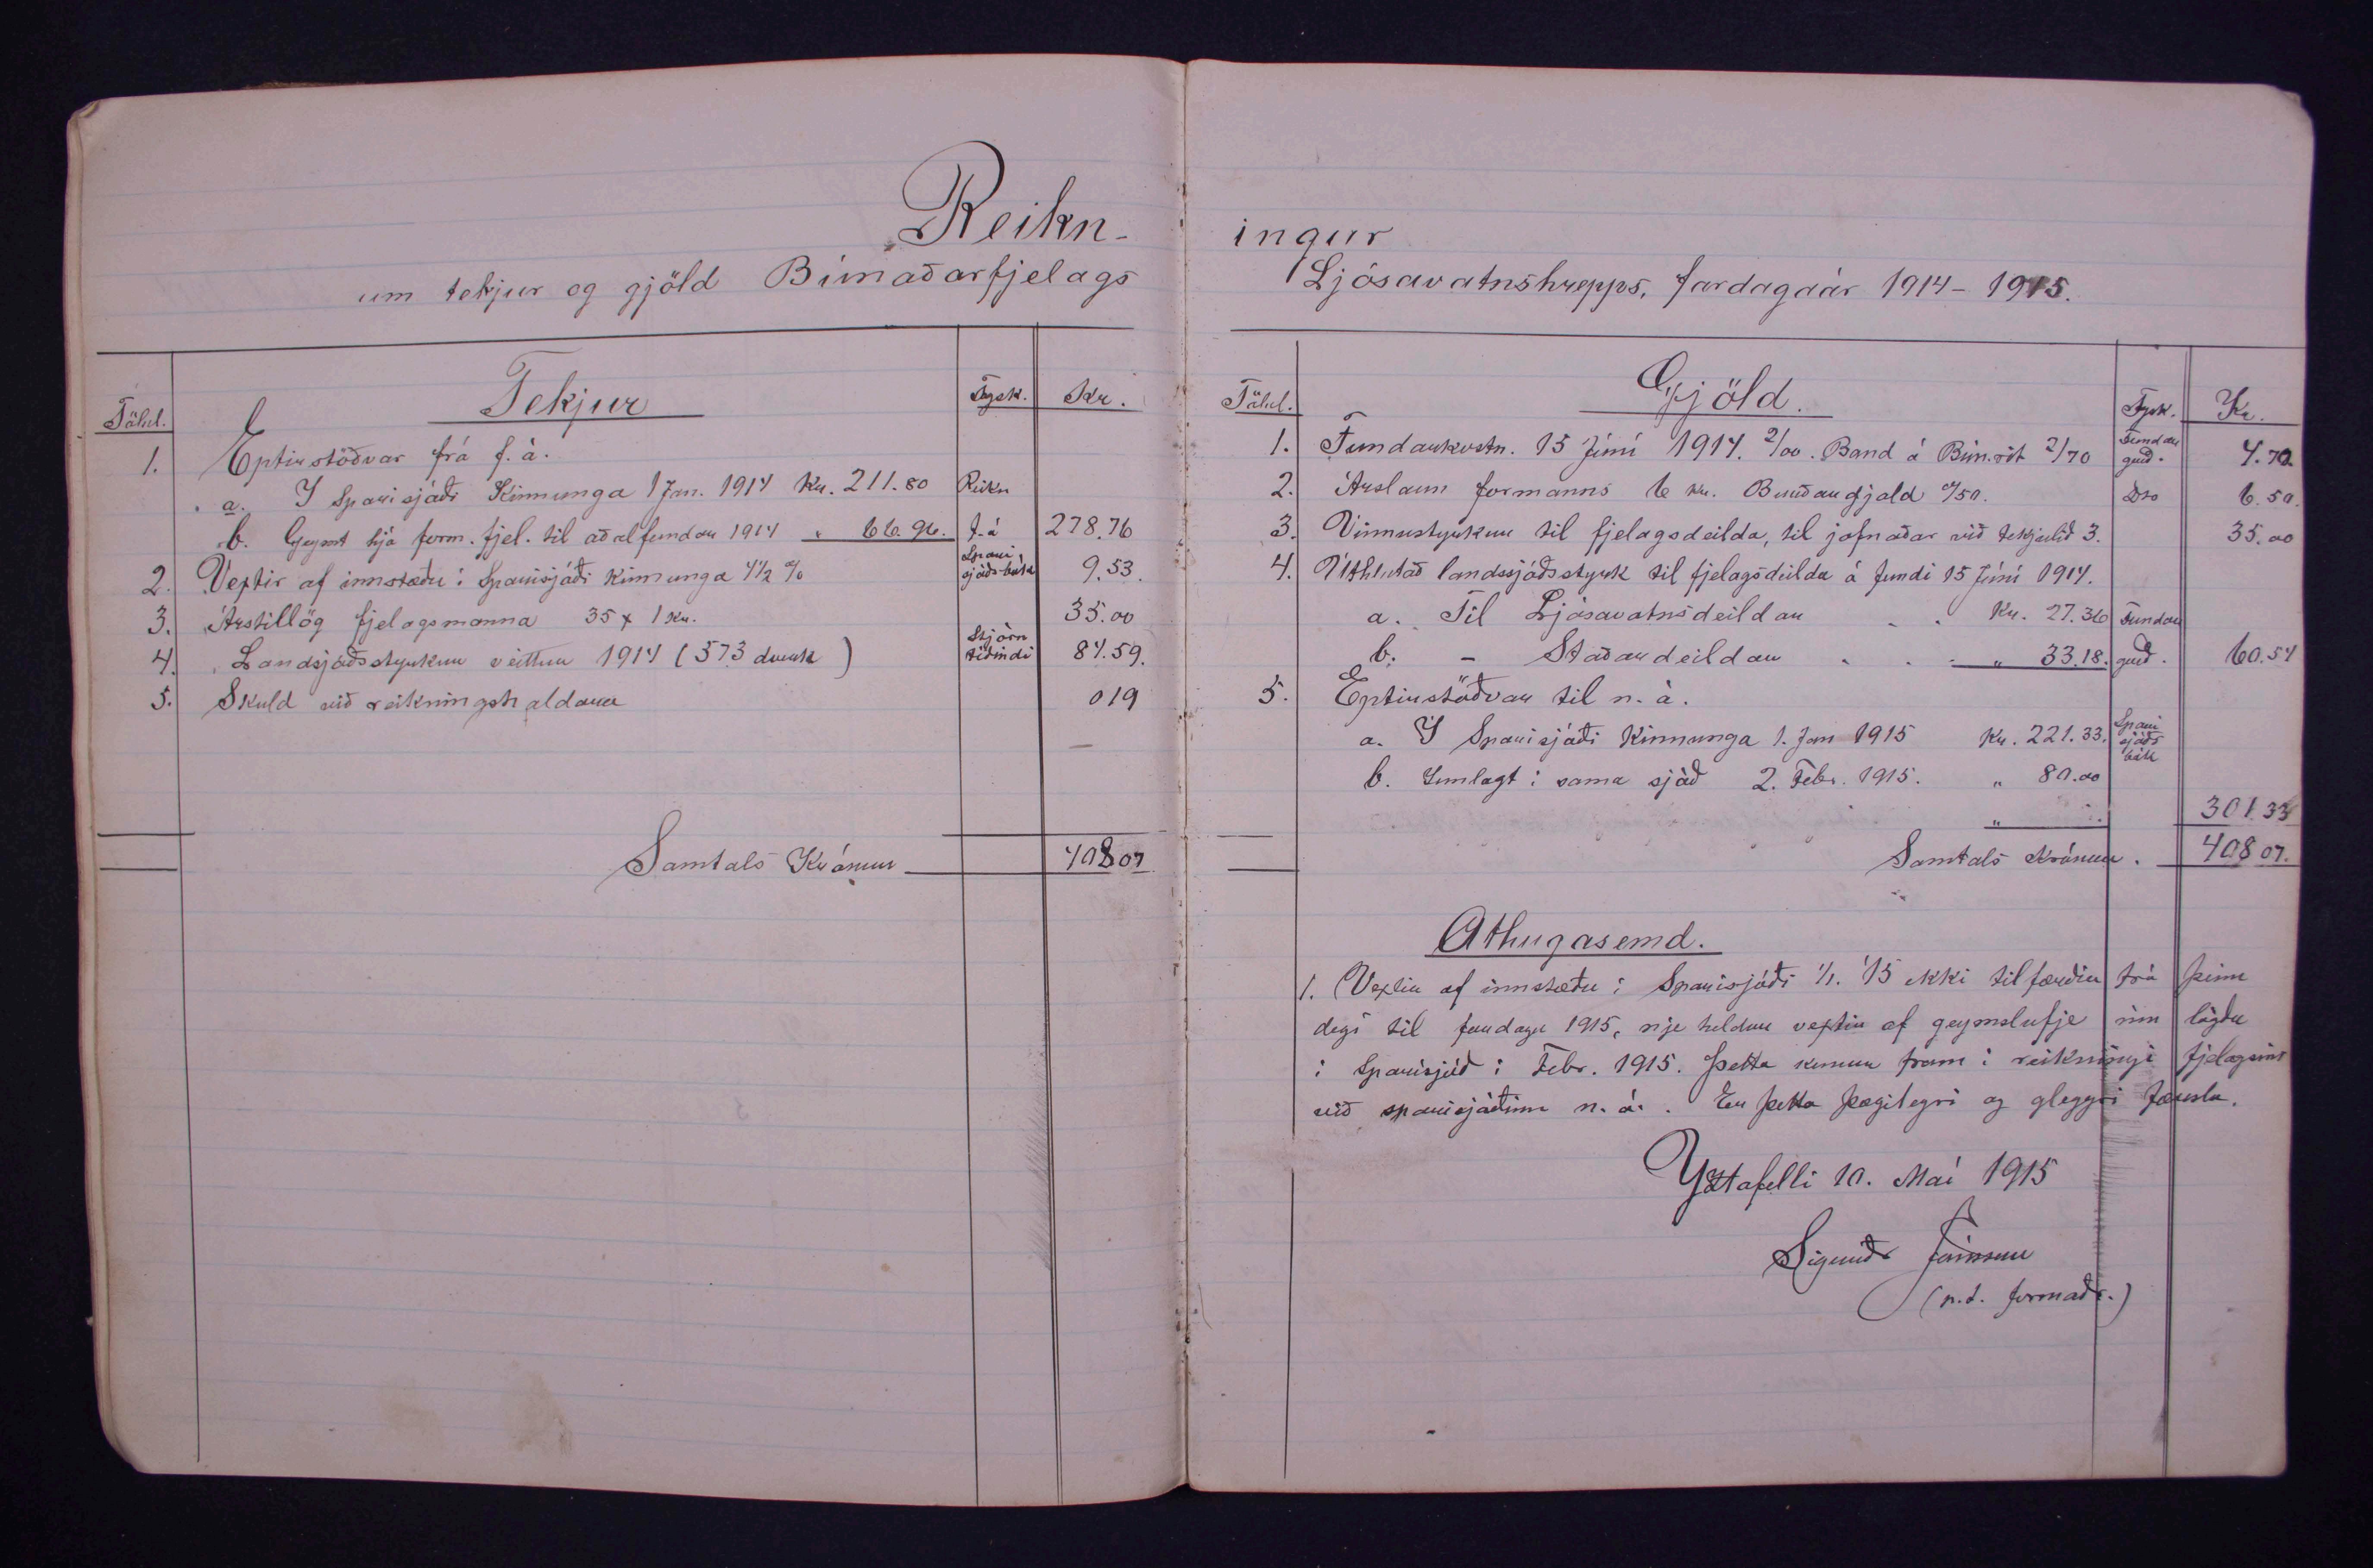 Reikn-
um tekjur og gjöld Búnaðarfjelags
Tölul. Tekjur Fysk. Kr.
1. Eptirstöðvar frá f. á.
a. Í Sparisjóði Kinnunga 1 Jan. 1914 Kr. 211.80 Reikn
b. Geymt hjá form. fjel. til aðalfundar 1914 " 66.96. f. á 278.76
2. Vextir af innstæðu í Sparisjóði Kinnunga 4½ % Spari sjóðs-bók 9.53
3. Árstillög fjelagsmanna 35 x 1 kr. 35.00
4. Landsjóðsstyrkur veittur 1914 (573 dsverk) Stjórn tíðindi 84.59.
5. Skuld við reikningshaldara 019
Samtals Krónur 40807
ingur
Ljósavatnshrepps, fardagaár 1914-1915.
Tölul. Gjöld. Fysk. Kr.
1. Fundarkostn. 15 Júní 1914. 2/00. Band á Bún.rit 2/70 Fundar gerð. 4.70
2. Árslaun formanns 6 kr. Burðargjald 0/50. Dto 6.50.
3. Vinnustyrkur til fjelagsdeilda, til jafnaðar við tekjulið 3. 35.00
4. Úthlutað landssjóðsstyrk til fjelagsdeilda á fundi 15 Júní 1914.
a. Til Ljósavatnsdeildar . . Kr. 27.36 Fundar
b. - Staðardeildar . . . " 33.18. gerð. 60.54
5. Eptirstöðvar til n. á.
a. Í Sparisjóði Kinnunga 1. Jan 1915 Kr. 221.33. Spari sjóðs bók
b. Innlagt í sama sjóð 2. Febr. 1915. " 80.00
" 301.33
Samtals Krónur. 408 07.
Athugasemd.
1. Vextir af innstæðu í Sparisjóði 1/1. '15 ekki tilfærðir frá þeim
degi til fardaga 1915, nje heldur vextir af geymslufje inn lögðu
í Sparisjóð í Febr. 1915. Þetta kemur fram í reikningi fjelagsins
við sparisjóðinn n. á. . Er þetta þægilegri og gleggri færsla.
Yztafelli 10. Maí 1915
Sigurðr Jónsson
(n.d. formaðr.)